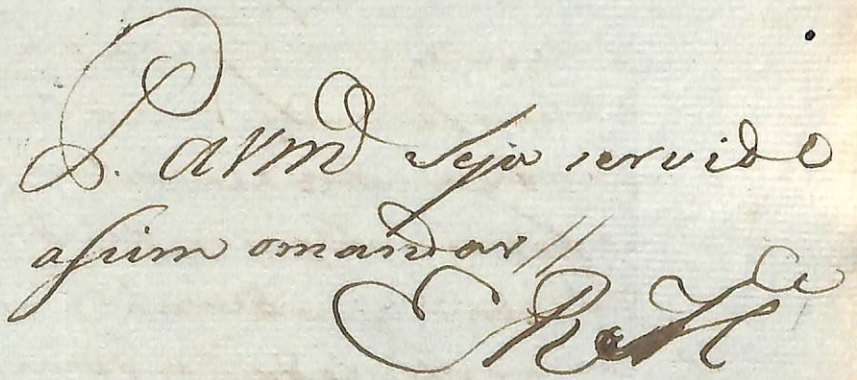 P. avmd seja servido
assim omandar//
ERMce